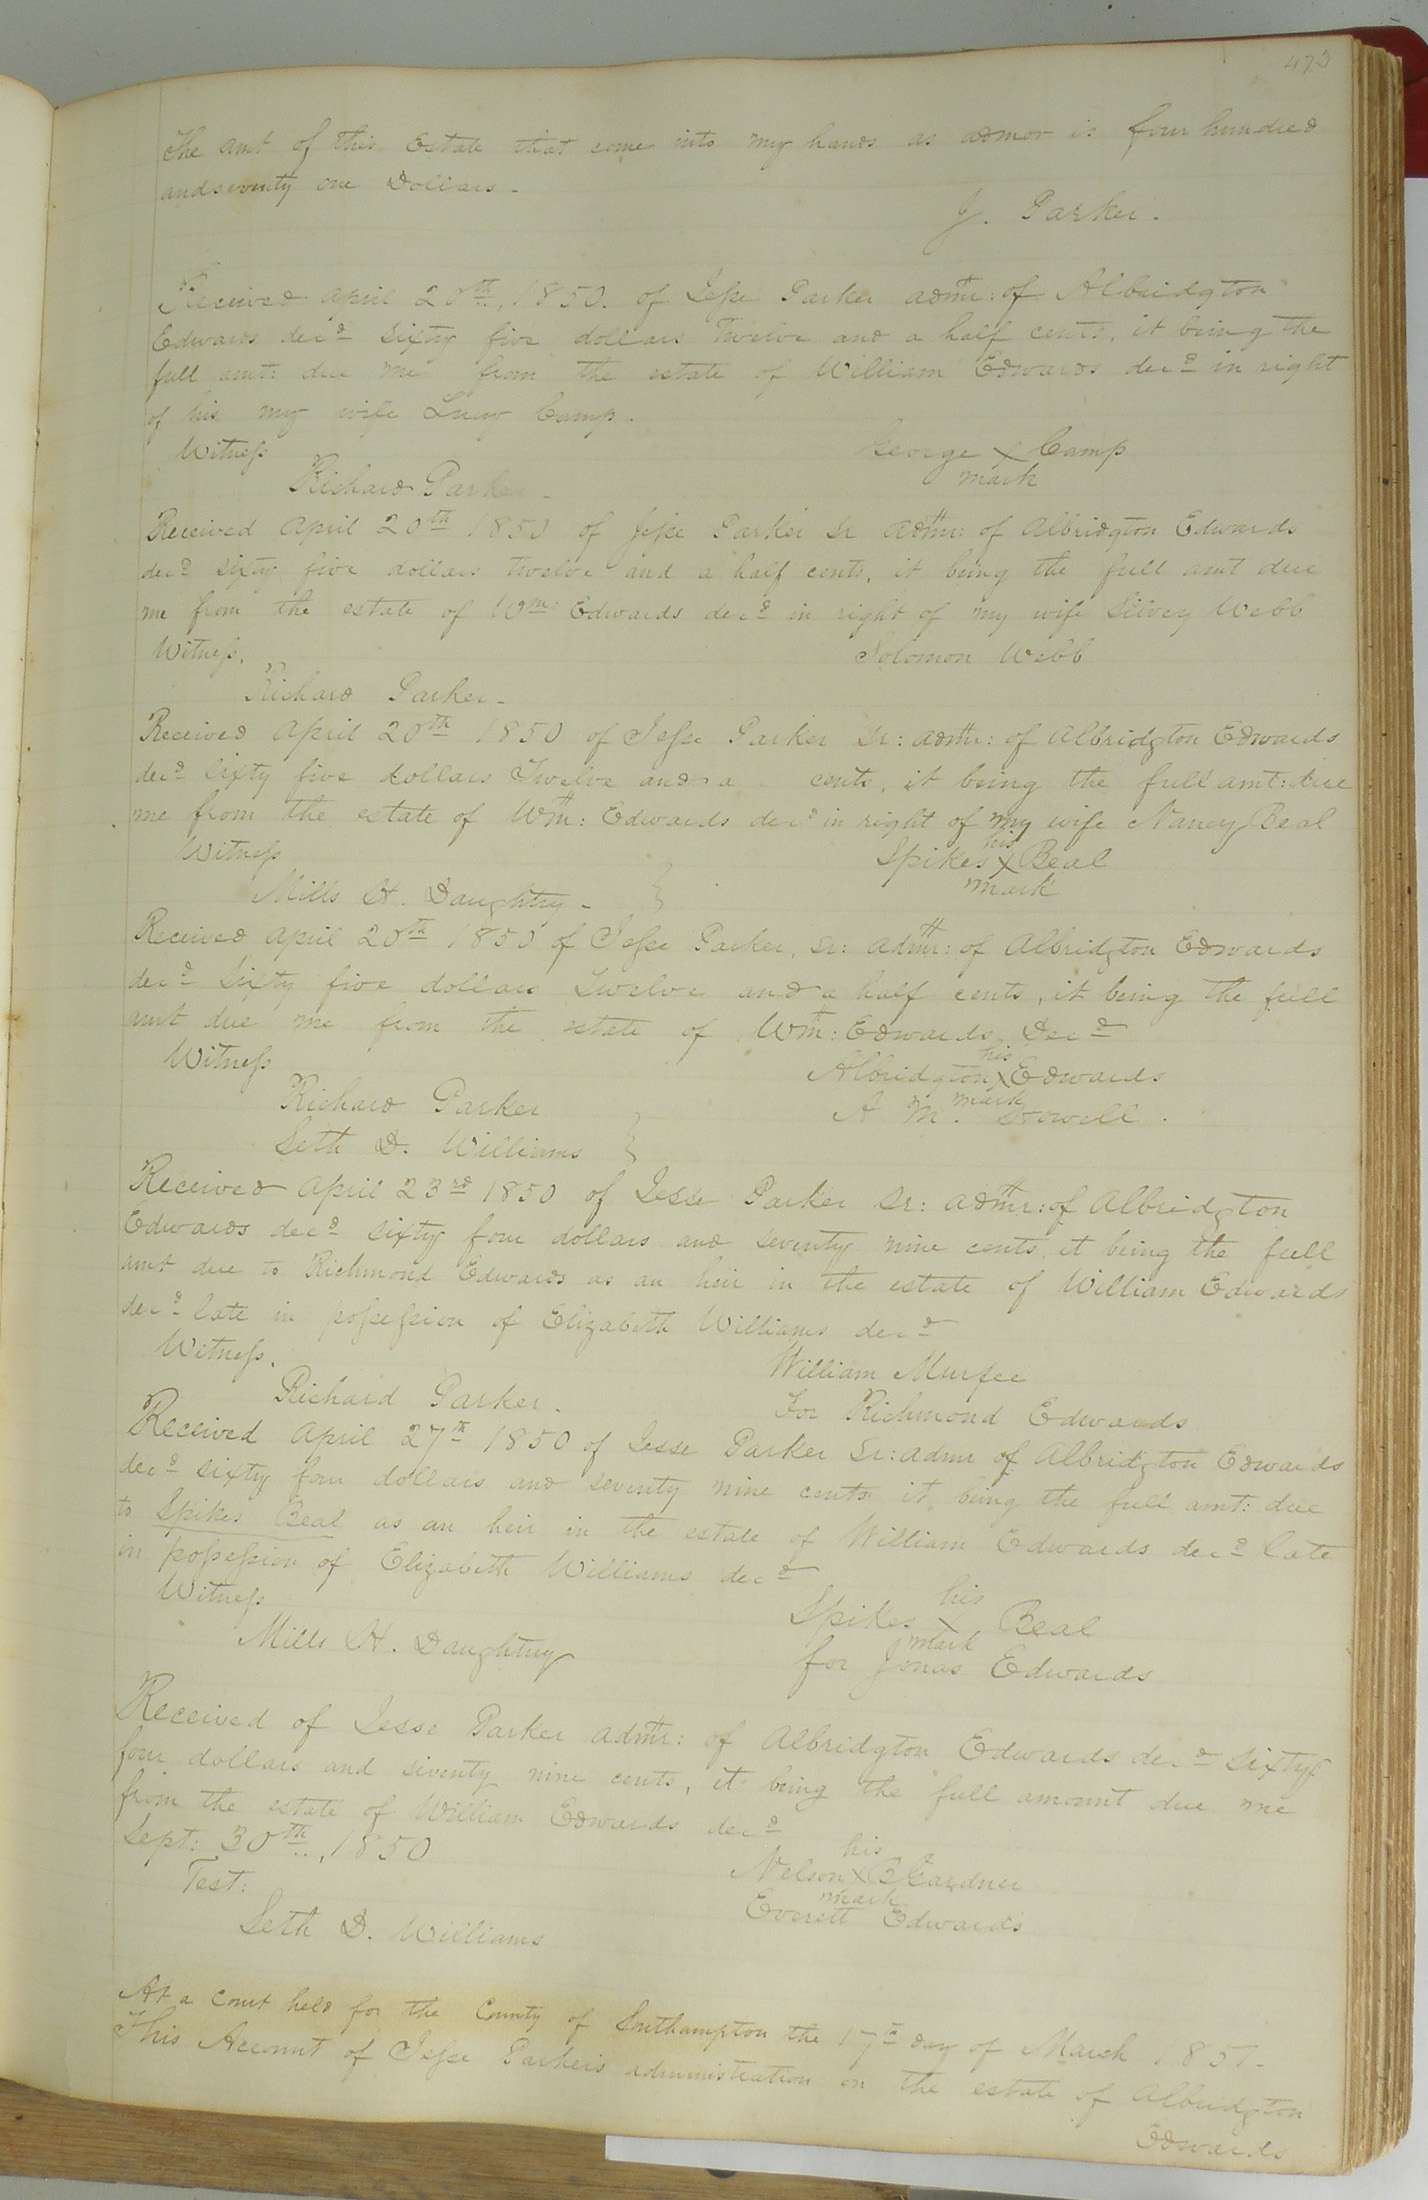 473
The amt of this Estate that come into my hands as admor is four hundred
and seventy one Dollars.
J. Parker.
Received April 20th, 1850. of Jesse Parker admr: of Albridgton
Edwards decd sixty five dollars Twelve and a half cents, it being the
full amt: due me from the estate of William Edwards decd in right
of his my wife Lucy Camp.
Witness
George X Camp
mark
Richard Parker
Received April 20th 1850 of Jesse Parker Sr admr: of Albridgton Edwards
decd sixty five dollars twelve and a half cents, it being the full amt due
me from the estate of Wm: Edwards decd in right of my wife Silvey Webb
Witness.
Solomon Webb
Richard Parker
Received April 20th 1850 of Jesse Parker Sr: admr: of Albridgton Edwards
decd sixty five dollars Twelve and a cents, it being the full amt: due
me from the estate of Wm: Edwards decd in right of my wife Nancy Beal
Witness
his
Spikes X Beal
mark
Mills H. Daughtry
Received April 20th 1850 of Jesse Parker, Sr: admr: of Albridgton Edwards
decd sixty five dollars Twelve and a half cents, it being the full
amt due me from the estate of Wm: Edwards Decd
Witness
his
Albridgton X Edwards
mark
Richard Parker
A M. Howell.
Seth D. Williams
Received April 23rd 1850 of Jesse Parker Sr: admr: of Albridgton
Edwards decd sixty four dollars and seventy nine cents it being the full
amt due to Richmond Edwards as an heir in the estate of William Edwards
decd late in possession of Elizabeth Williams decd
Witness.
William Murfee
Richard Parker.
For Richmond Edwards
Received April 27th 1850 of Jesse Parker Sr: admr of Albridgton Edwards
decd sixty four dollars and seventy nine cents it being the full amt: due
to Spikes Beal as an heir in the estate of William Edwards decd late
in possession of Elizabeth Williams decd
Witness
his
Spikes X Beal
mark
Mills H. Daughtry
for Jonas Edwards
Received of Jesse Parker admr: of Albridgton Edwards decd sixty
four dollars and seventy nine cents, it being the full amount due me
from the estate of William Edwards decd
Sept: 30th, 1850
his
Test:
Nelson X B Gardner
mark
Everett Edwards
Seth D. Williams
At a Court held for the County of Southampton the 17th day of March 1851.
This Account of Jesse Parker's administration on the estate of Albridgton
Edwards